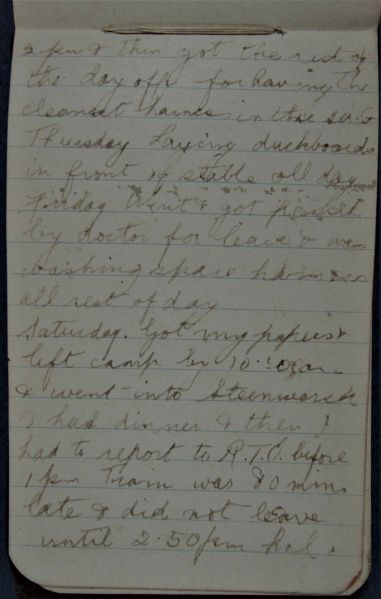 2 pm & then got the rest of
the day off for having the
cleanest harness in the
Thursday Laying duckboards
in front of stable all day
Friday Went & got passed
by doctor for leave & was
washing spare harness
all rest of day
Saturday. Got my papers &
left camp by 10.30 am
& went into Steenwerck
& had dinner & then I
had to report to R.T.O. before
1 pm Train was 80 mins
late & did not leave
until 2.50 pm